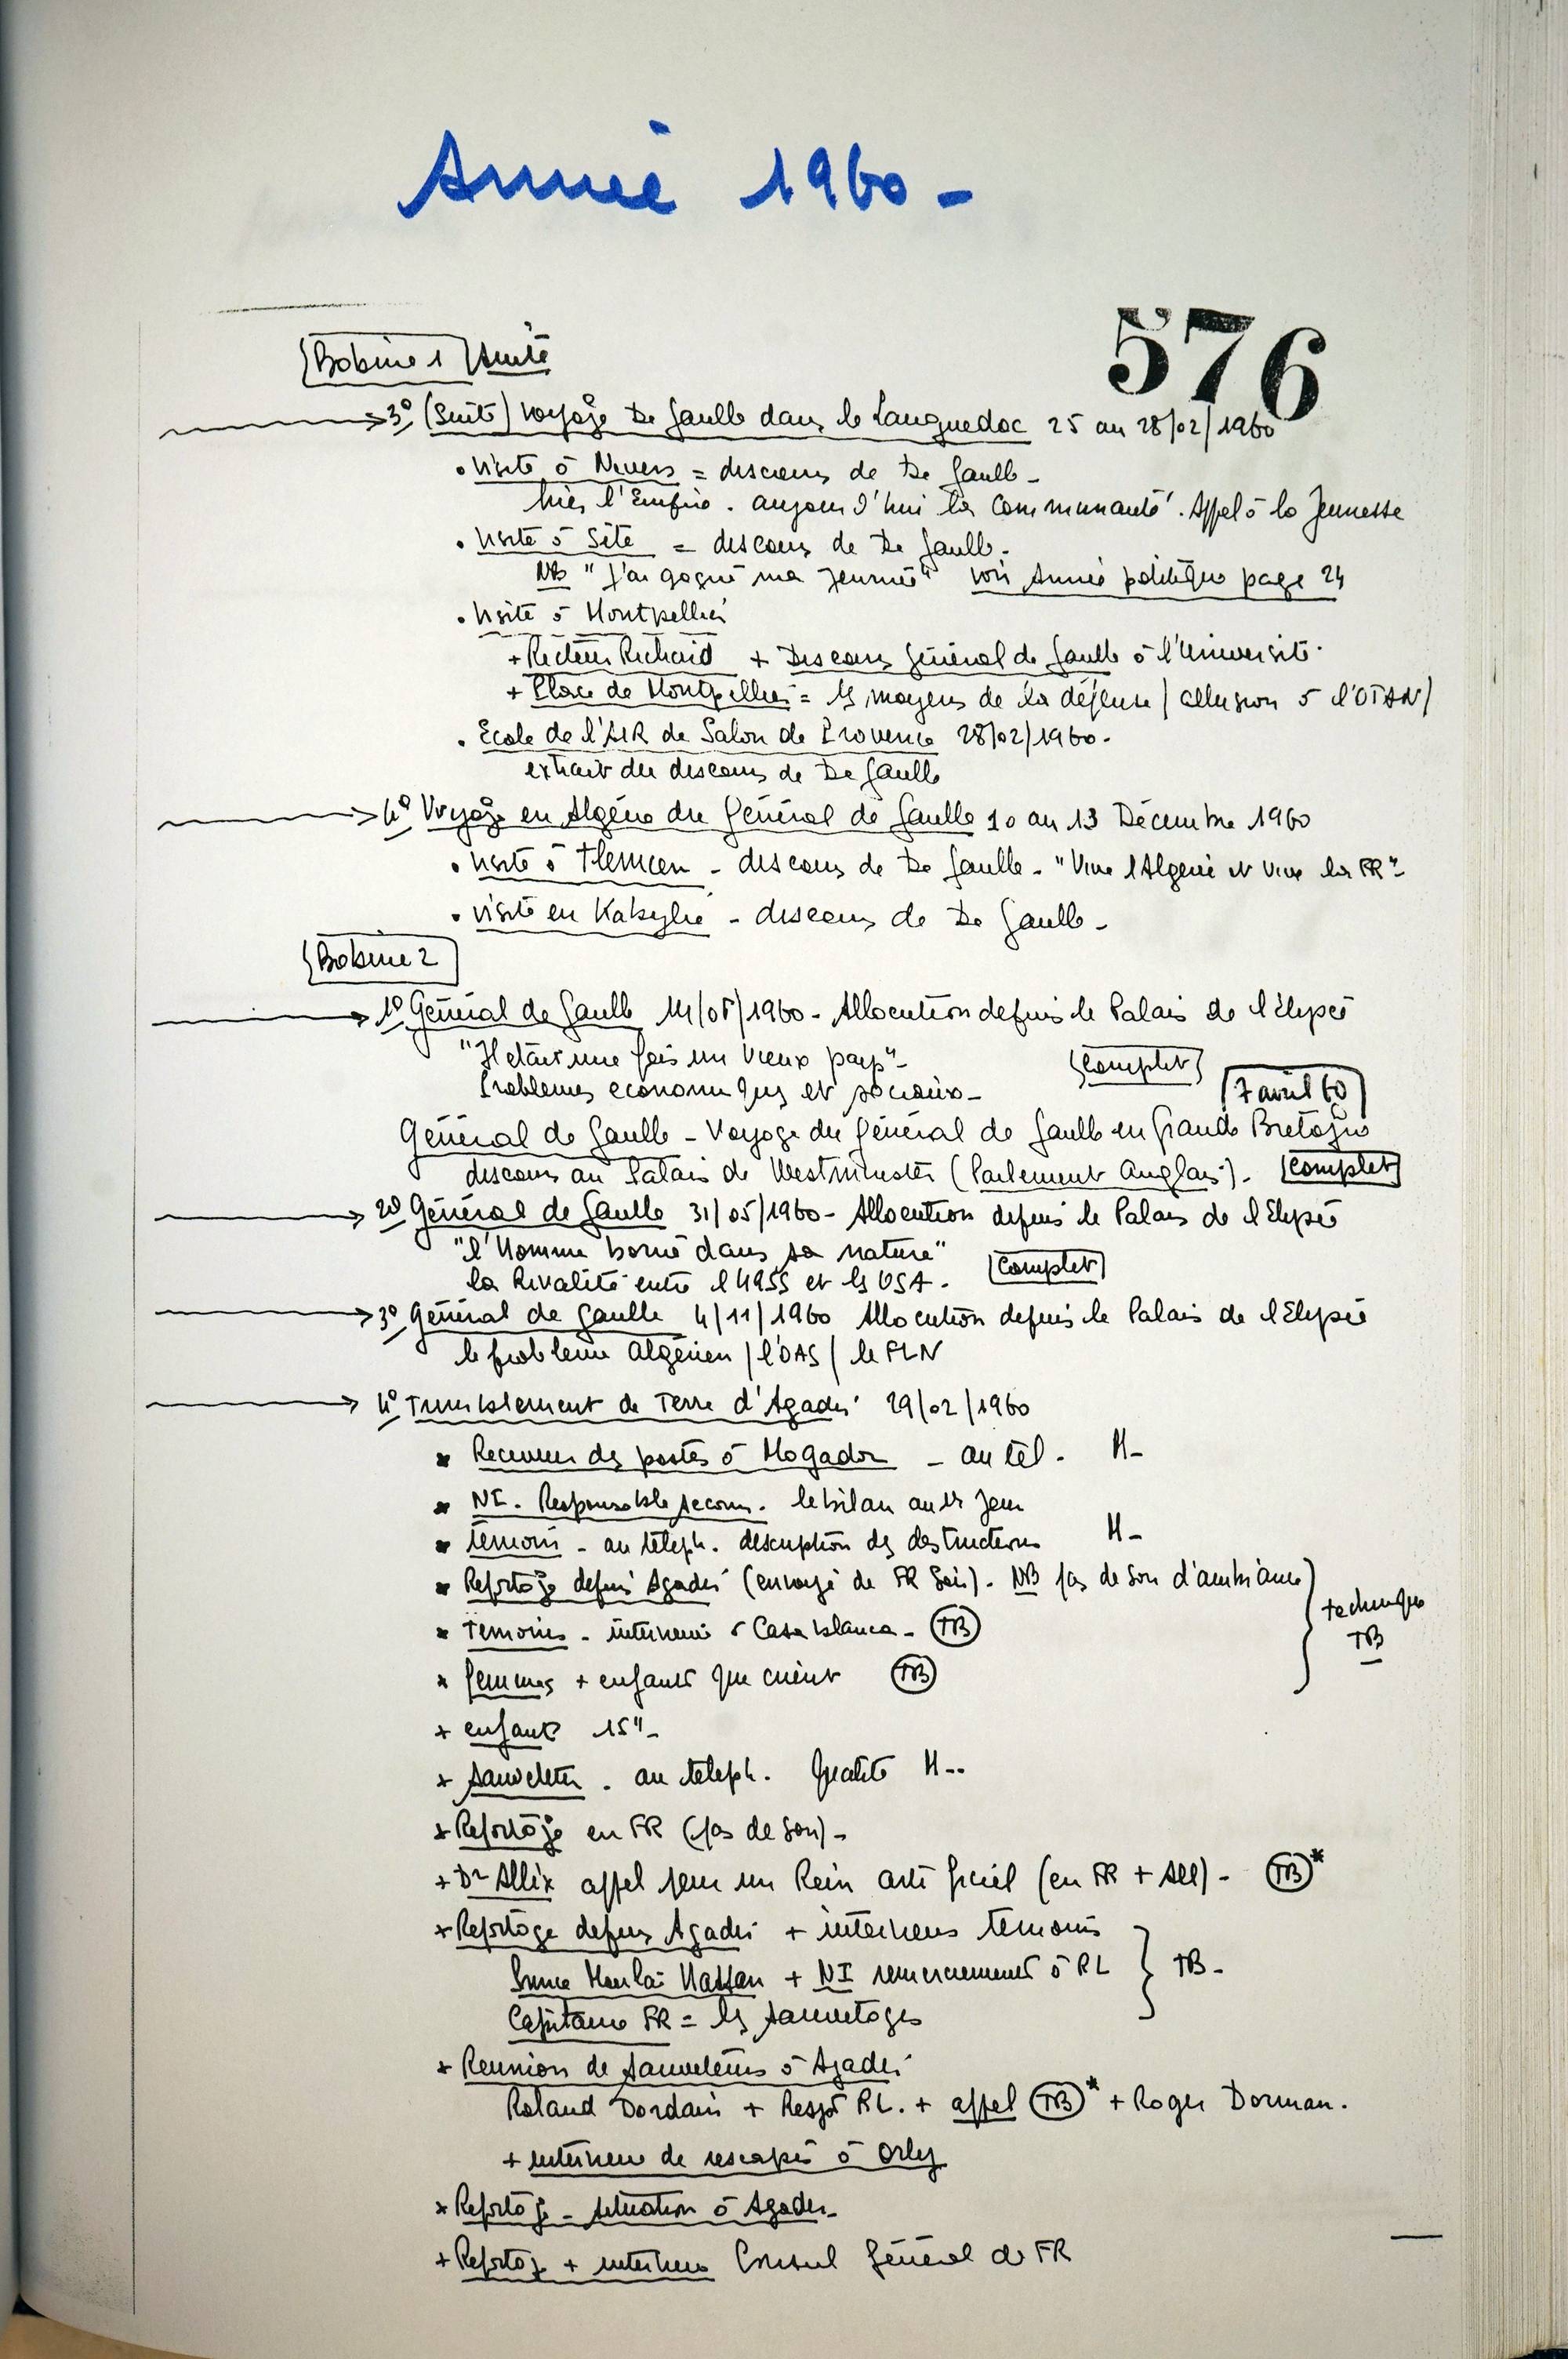 Année 1960 -
576
Bobine 1 Suite
3° (Suite) Voyage De Gaulle dans le Languedoc 25 au 28/02/1960
• Visite à = discours de De Gaulle -
hier l'Empire. aujourd'hui la Communauté. Appel à la Jeunesse
• Visite à Sète = discours de De Gaulle.
NB "J'ai gagné ma journée" voir Année politique page 24
• Visite à Montpellier
+ Recteur Richard + Discours Général de Gaulle à l'Université.
+ Place de Montpellier = les moyens de la défense (allusion à l'OTAN)
• Ecole de l'AIR de Salon de Provence 28/02/1960.
extrait du discours de De Gaulle
4° Voyage en Algérie du Général de Gaulle 10 au 13 Décembre 1960
• Visite à Tlemcen - discours de De Gaulle - "Vive l'Algérie et Vive la FR" -
• visite en Kabylie - discours de De Gaulle -
Bobine 2
1° Général de Gaulle 14/06/1960 - Allocution depuis le Palais de l'Elysée
"Il était une fois un vieux pays" -
Complet
Problèmes économiques et sociaux -
7 avril 60
Général de Gaulle - Voyage du Général de Gaulle en Grande Bretagne
discours au Palais de Westminster (Parlement Anglais). Complet
2° Général de Gaulle 31/05/1960 - Allocution depuis le Palais de l'Elysée
"l'Homme borné dans sa nature"
la Rivalité entre l'URSS et les USA. Complet
3° Général de Gaulle 4/11/1960 Allocution depuis le Palais de l'Elysée
le problème Algérien / l'OAS / le FLN
4° Tremblement de Terre d'Agadir 29/02/1960
* Receveur des postes à Mogador - au tél. M-
* NI. Responsable secours. le bilan au 1er jour
* témoin - au téléph. description des destructions M-
* Reportage depuis Agadir (envoyé de FR Soir). NB pas de son d'ambiance
technique
TB
* Témoins - interviewé à Casablanca - TB
* femmes + enfants qui crient TB
+ enfants 15" -
+ sauveteur. au téléph. Qualité M--
+ Reportage en FR (pas de son) -
+ Dr Allix appel pour un Rein artificiel (en FR + All) - TB*
+ Reportage depuis Agadir + interviews témoins
Moulai Hassan + NI remerciements à RL TB -
Capitaine FR = les sauvetages
+ Réunion de sauveteurs à Agadir
Roland Dordain + Resp RL. + appel TB* + Roger Dorman.
+ interview de rescapés à Orly
* Reportage - situation à Agadir -
+ Reportage + interview Consul Général de FR